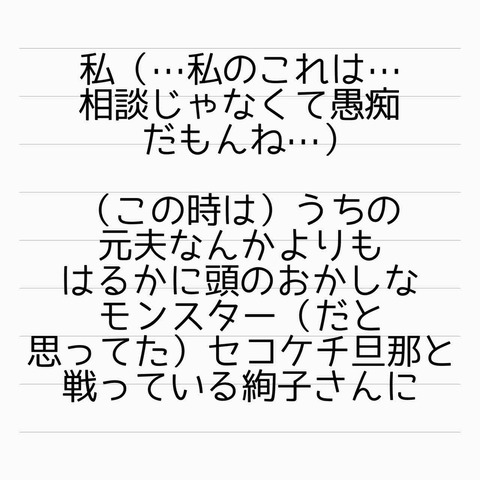 私（…私のこれは…
相談じゃなくて愚痴
だもんね…）
（この時は）うちの
元夫なんかよりも
はるかに頭のおかしな
モンスター（だと
思ってた）セコケチ旦那と
戦っている絢子さんに